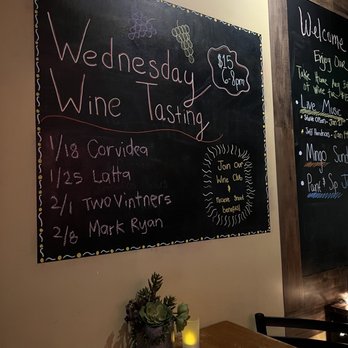 Wednesday
Wine Tasting
$15
6-8pm
1/18 Corvidea
1/25 Latta
2/1 Two Vintners
2/8 Mark Ryan
Join Our
Wine Club
&
Receive Great
Benefits!
Welcome
Enjoy Our
Take Home Any
of Wine
• Live Music
• Mingo Sund
• Paint & Sip J